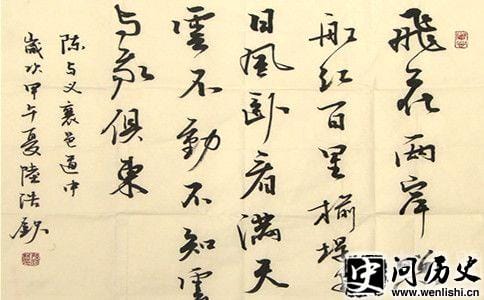 飛花兩岸
船紅百里榆堤
日風卧看滿天
雲不動不知雲
与我俱東
陳与义襄邑道中
歲次甲午夏陸浩
问历史
www.wenlishi.cn